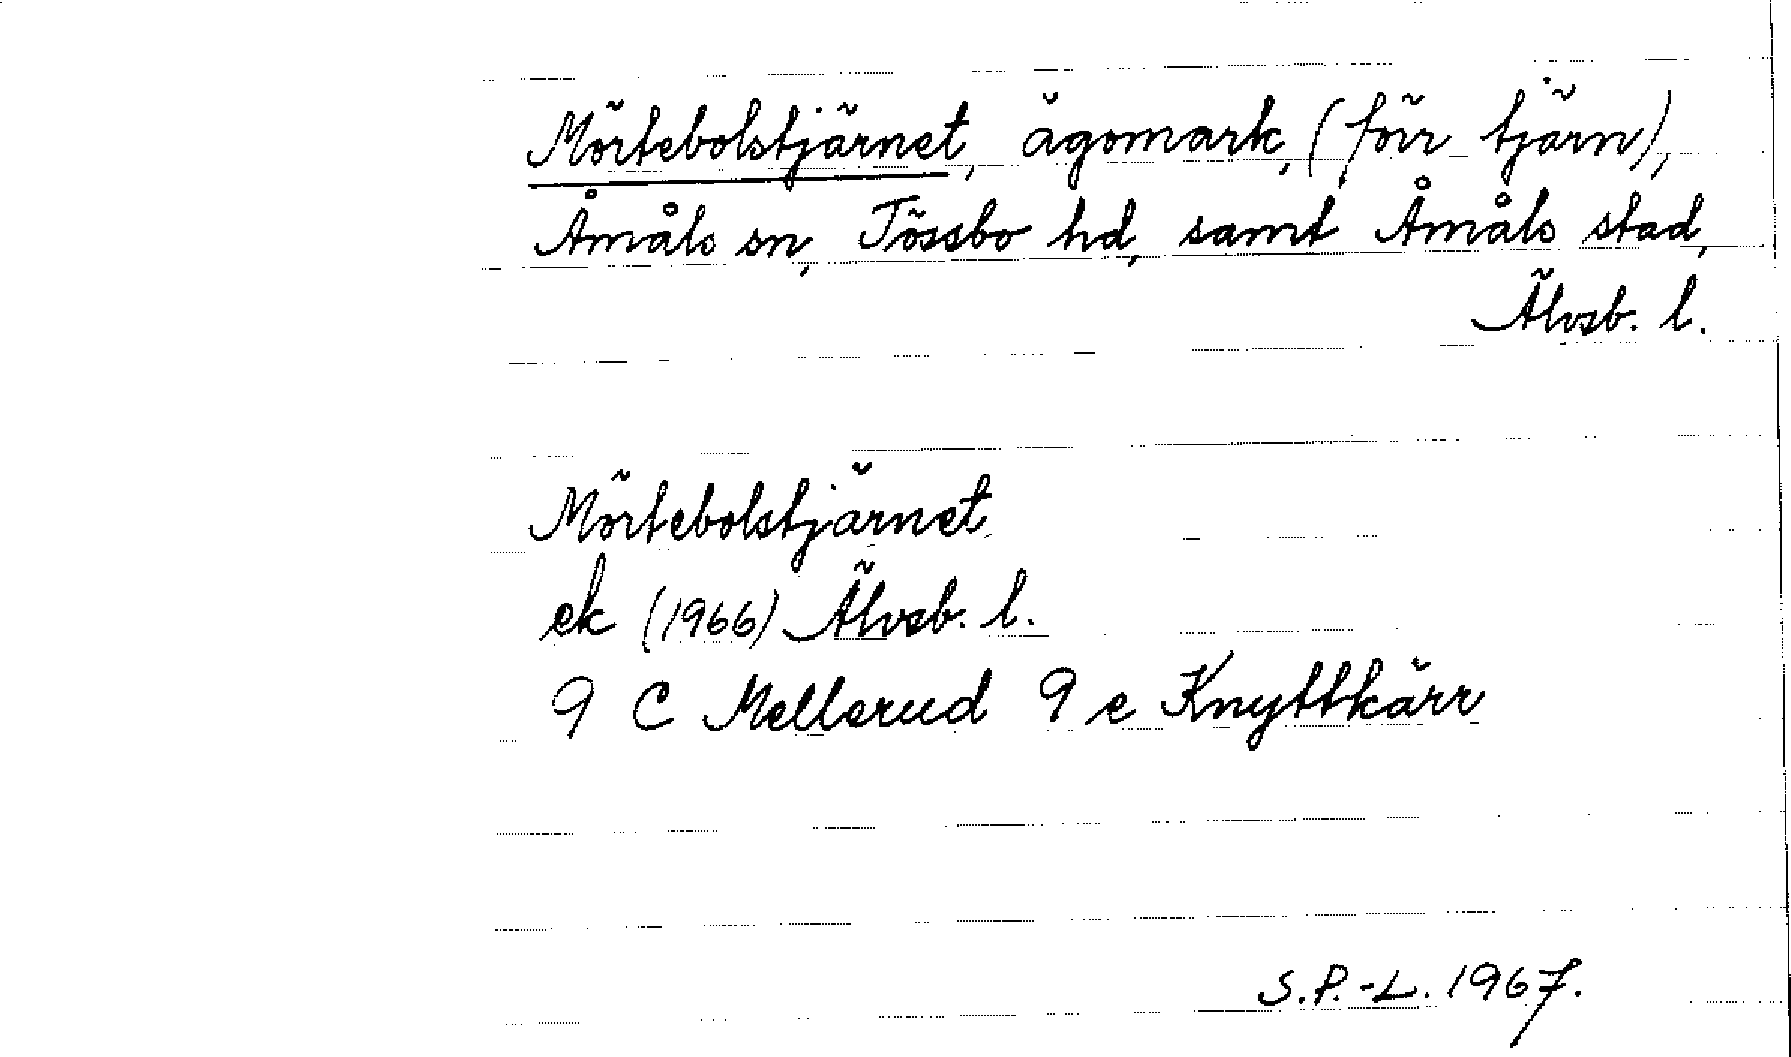 Mörtebolstjärnet, ägomark, (förr tjärn),
Åmåls sn, Tössbo hd, samt Åmåls stad,
Älvsb. l.
Mörtebolstjärnet
ek (1966) Älvsb. l.
9 C Mellerud 9 e Knyttkärr
S.P.-L. 1967.